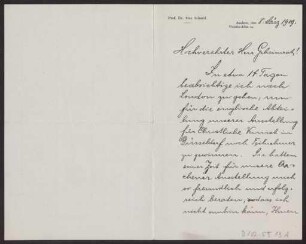 Prof. Dr. Max Schmid
Aachen, den 8. März 1909.
Hochverehrter Herr Geheimrath!
In etwa 14 Tagen
beabsichtige ich nach
London zu gehen, um
für die englische Abtei-
lung unserer Ausstellung
für Christliche Kunst in
Düsseldorf noch Teilnehmer
zu gewinnen. Sie hatten
seiner Zeit für unsere Aa-
chener Ausstellung mich
so freundlich und erfolg-
reich beraten, sodass ich
nicht umhin kann, Ihnen